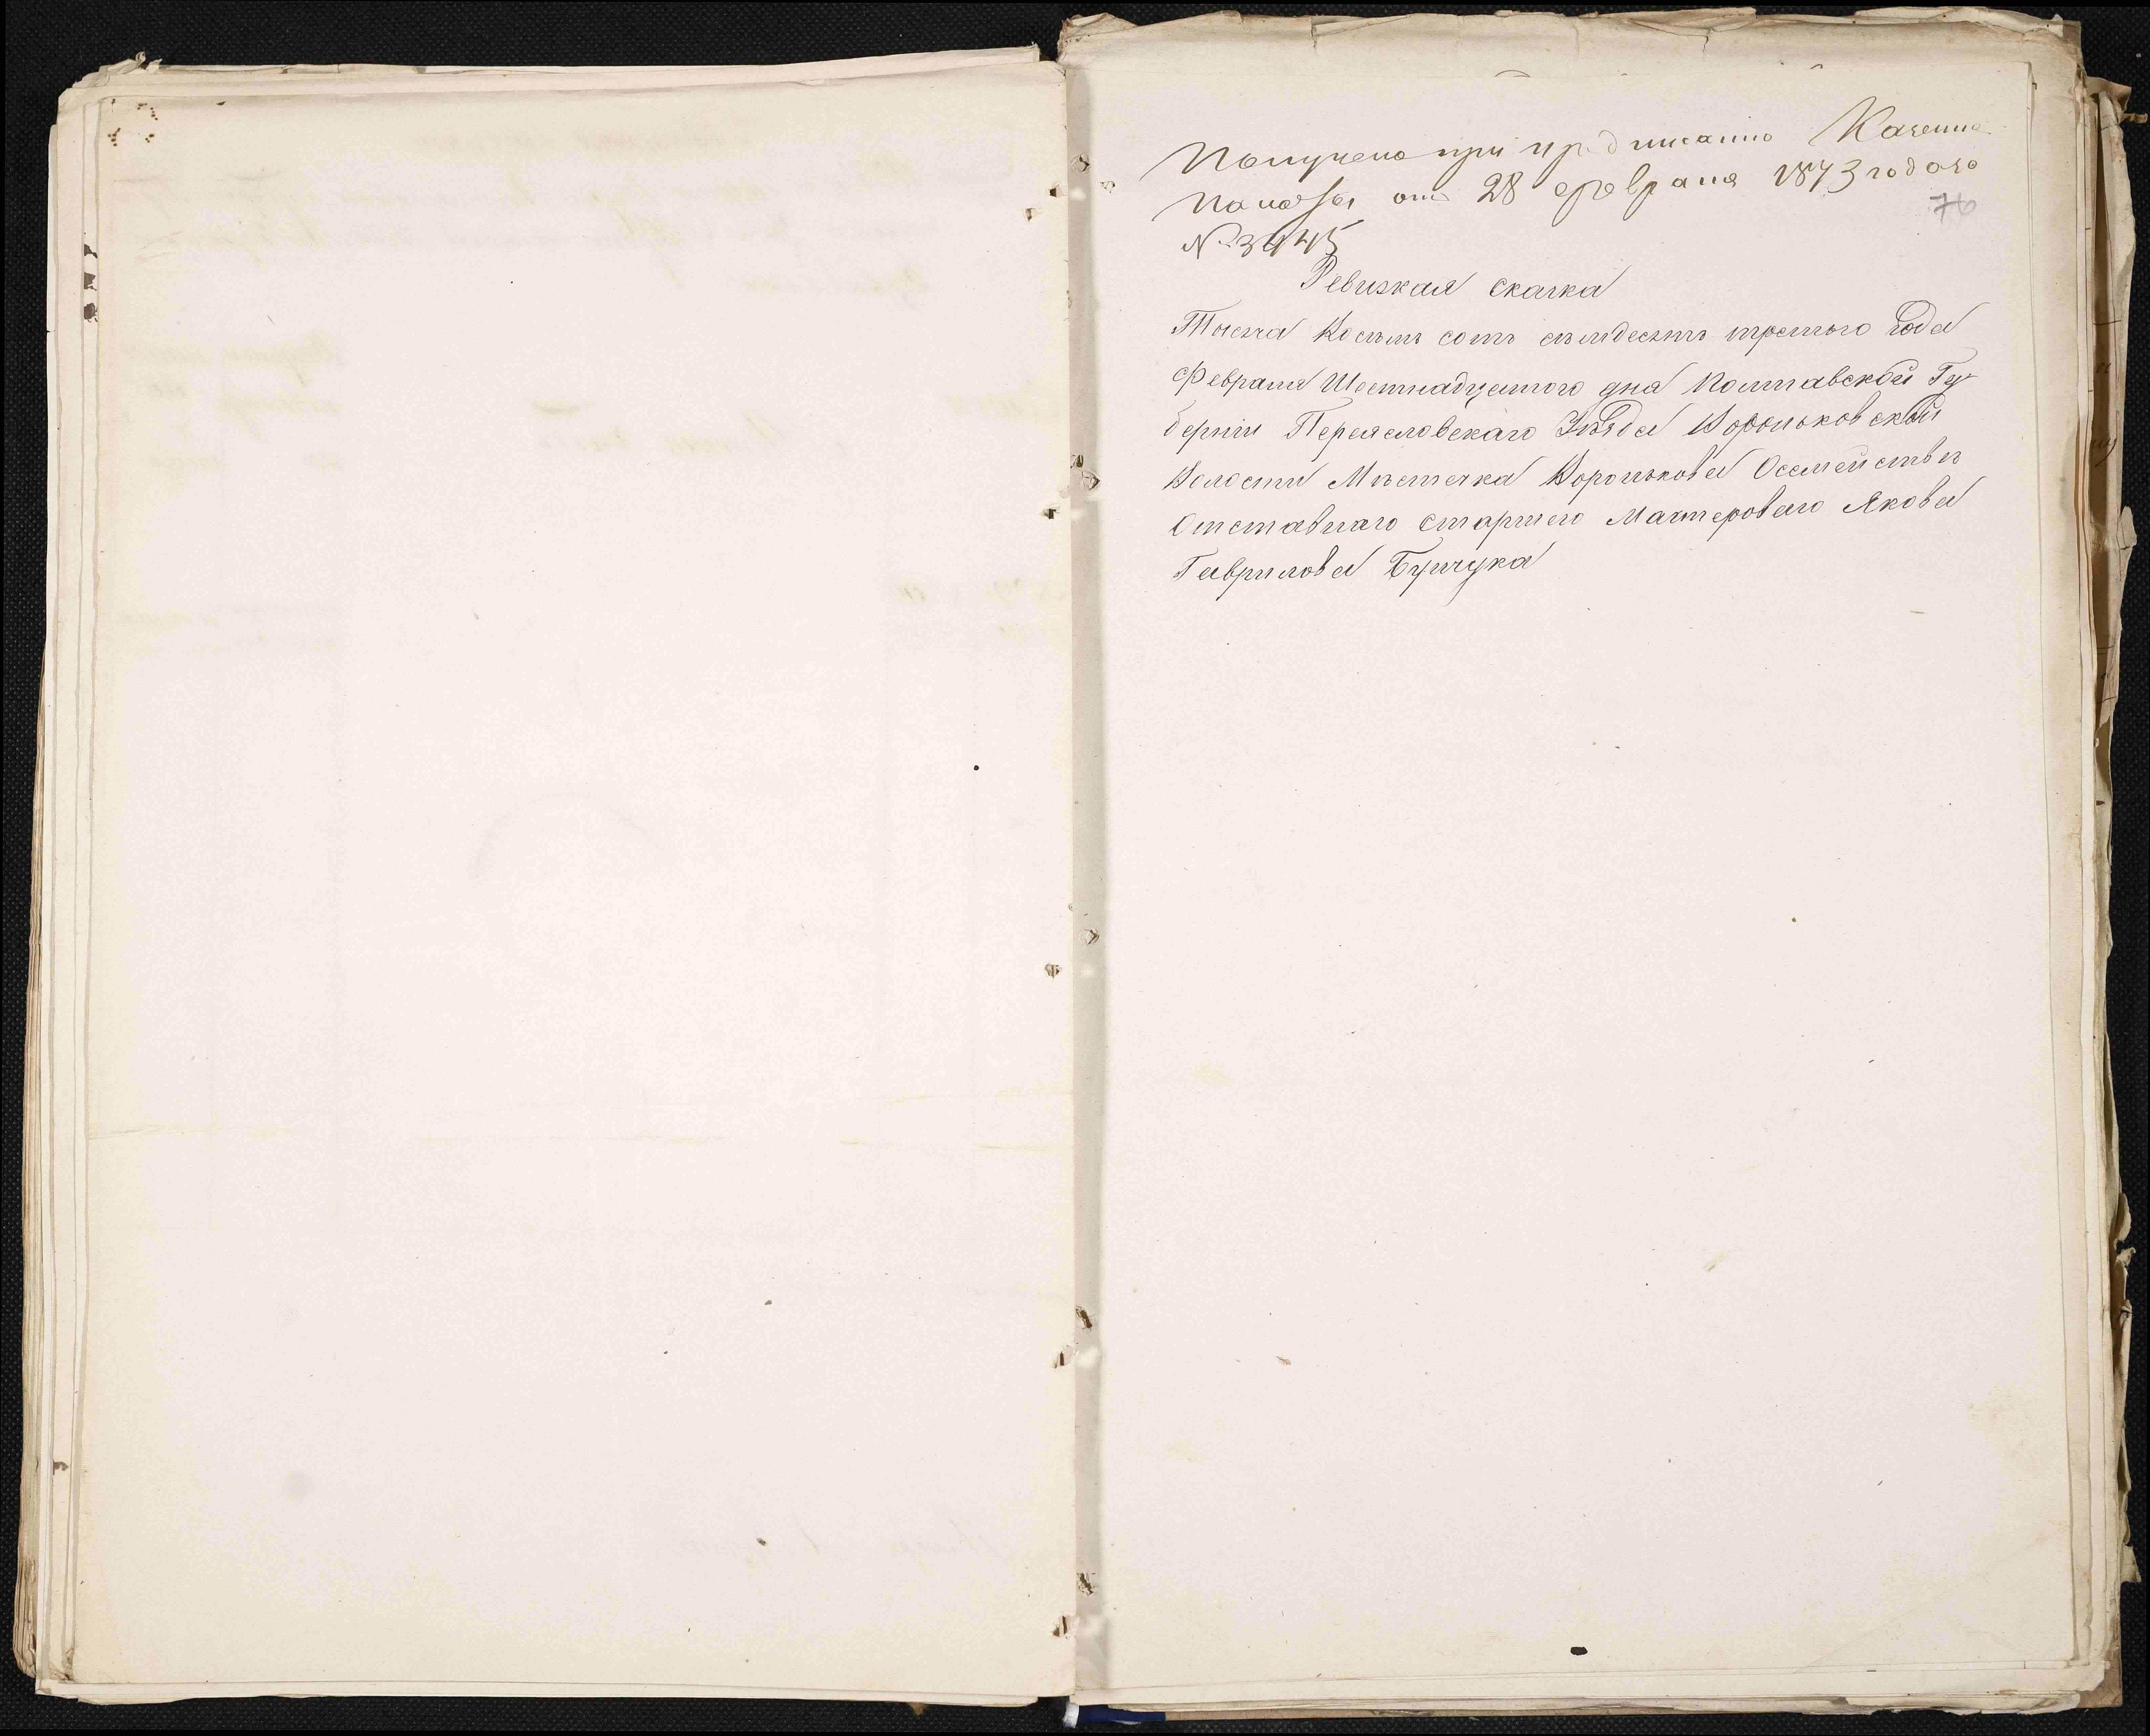 Получено при предписанiю Казенно
Палаты отъ 28 февраля 1873 года за
№ 3445
76
Ревизкая сказка
Тысяча Восемь сотъ семдесятъ третьего года
Февраля Шестнадцатого дня Полтавской Гу-
бернiи Переясловскаго Уѣзда Вороньковской
Волости Мѣстечка Воронькова О семействѣ
Отставнаго старшего Мастероваго Якова
Гаврилова Бунчука